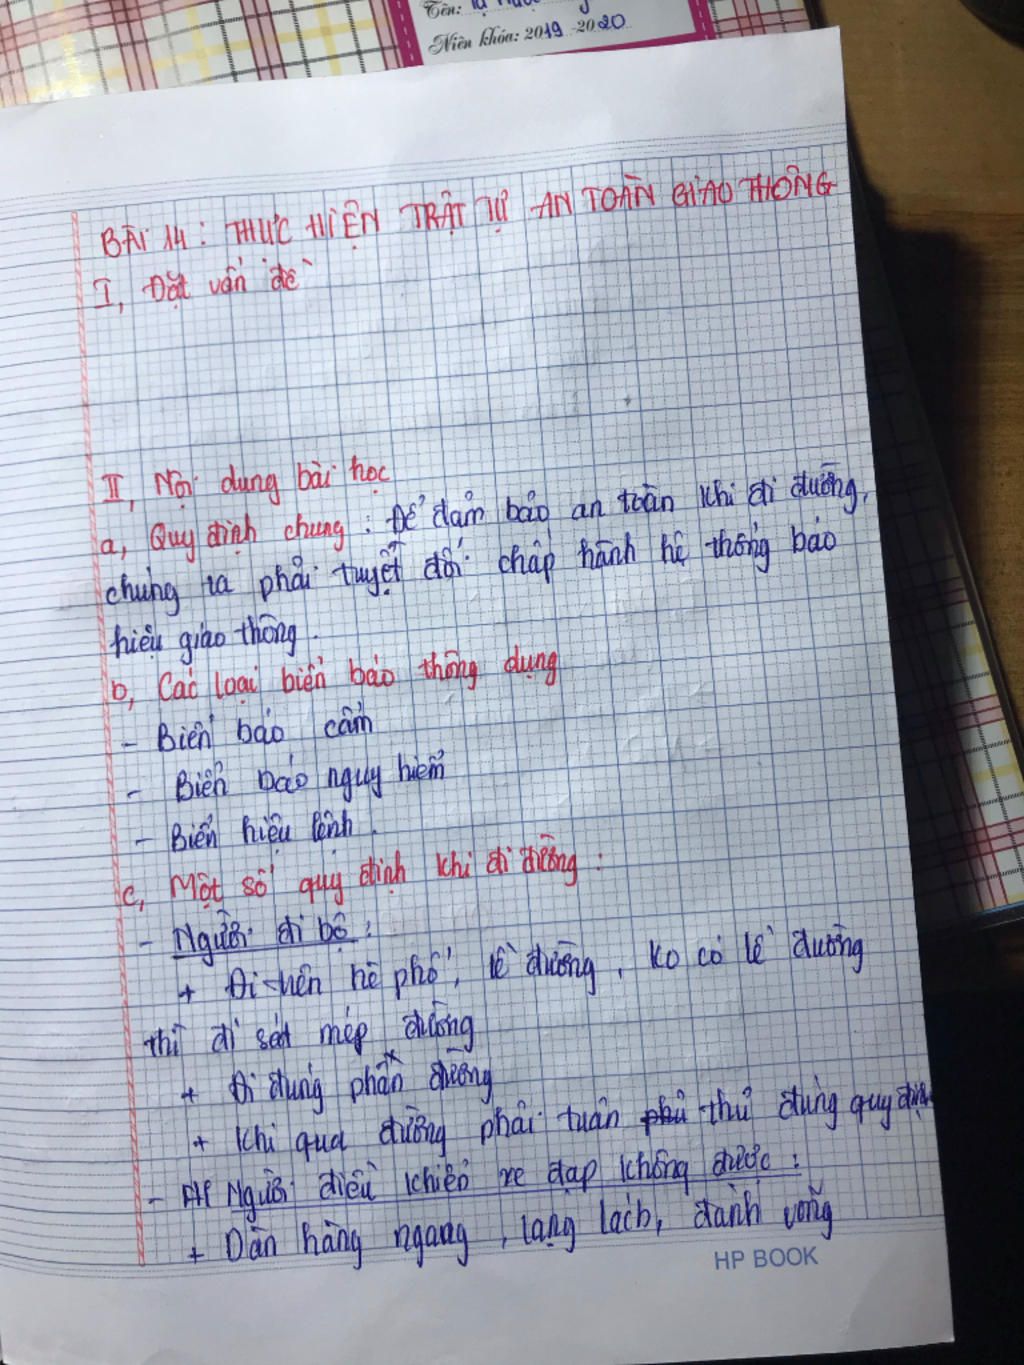 Tên: Tạ
Niên khóa: 2019 -2020
BÀI 14: THỰC HIỆN TRẬT TỰ AN TOÀN GIAO THÔNG
I, Đặt vấn đề
II, Nội dung bài học
a, Quy định chung: Để đảm bảo an toàn khi đi đường,
chúng ta phải tuyệt đối chấp hành hệ thống báo
hiệu giao thông.
b, Các loại biển báo thông dụng
- Biển báo cấm
- Biển báo nguy hiểm
- Biển hiệu lệnh.
c, Một số quy định khi đi đường:
- Người đi bộ:
+ Đi trên hè phố, lề đường, ko có lề đường
thì đi sát mép đường
+ Đi đúng phần đường
+ Khi qua đường phải tuân phủ thủ đúng quy định
- Người điều khiển xe đạp không được:
+ Dàn hàng ngang, lạng lách, đánh võng
HP BOOK